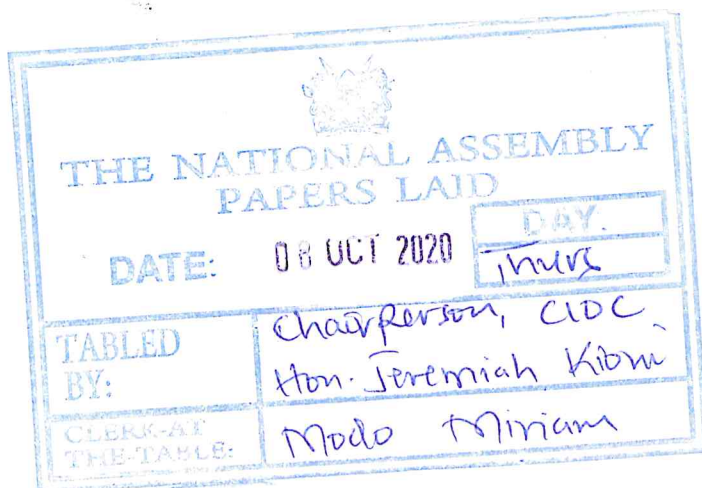 THE NATIONAL ASSEMBLY
PAPERS LAID
DATE: 08 OCT 2020
DAY.
Thurs
TABLED BY:
Chairperson, CIOC
Hon. Jeremiah Kioni
CLERK-AT THE-TABLE:
Modo Miriam